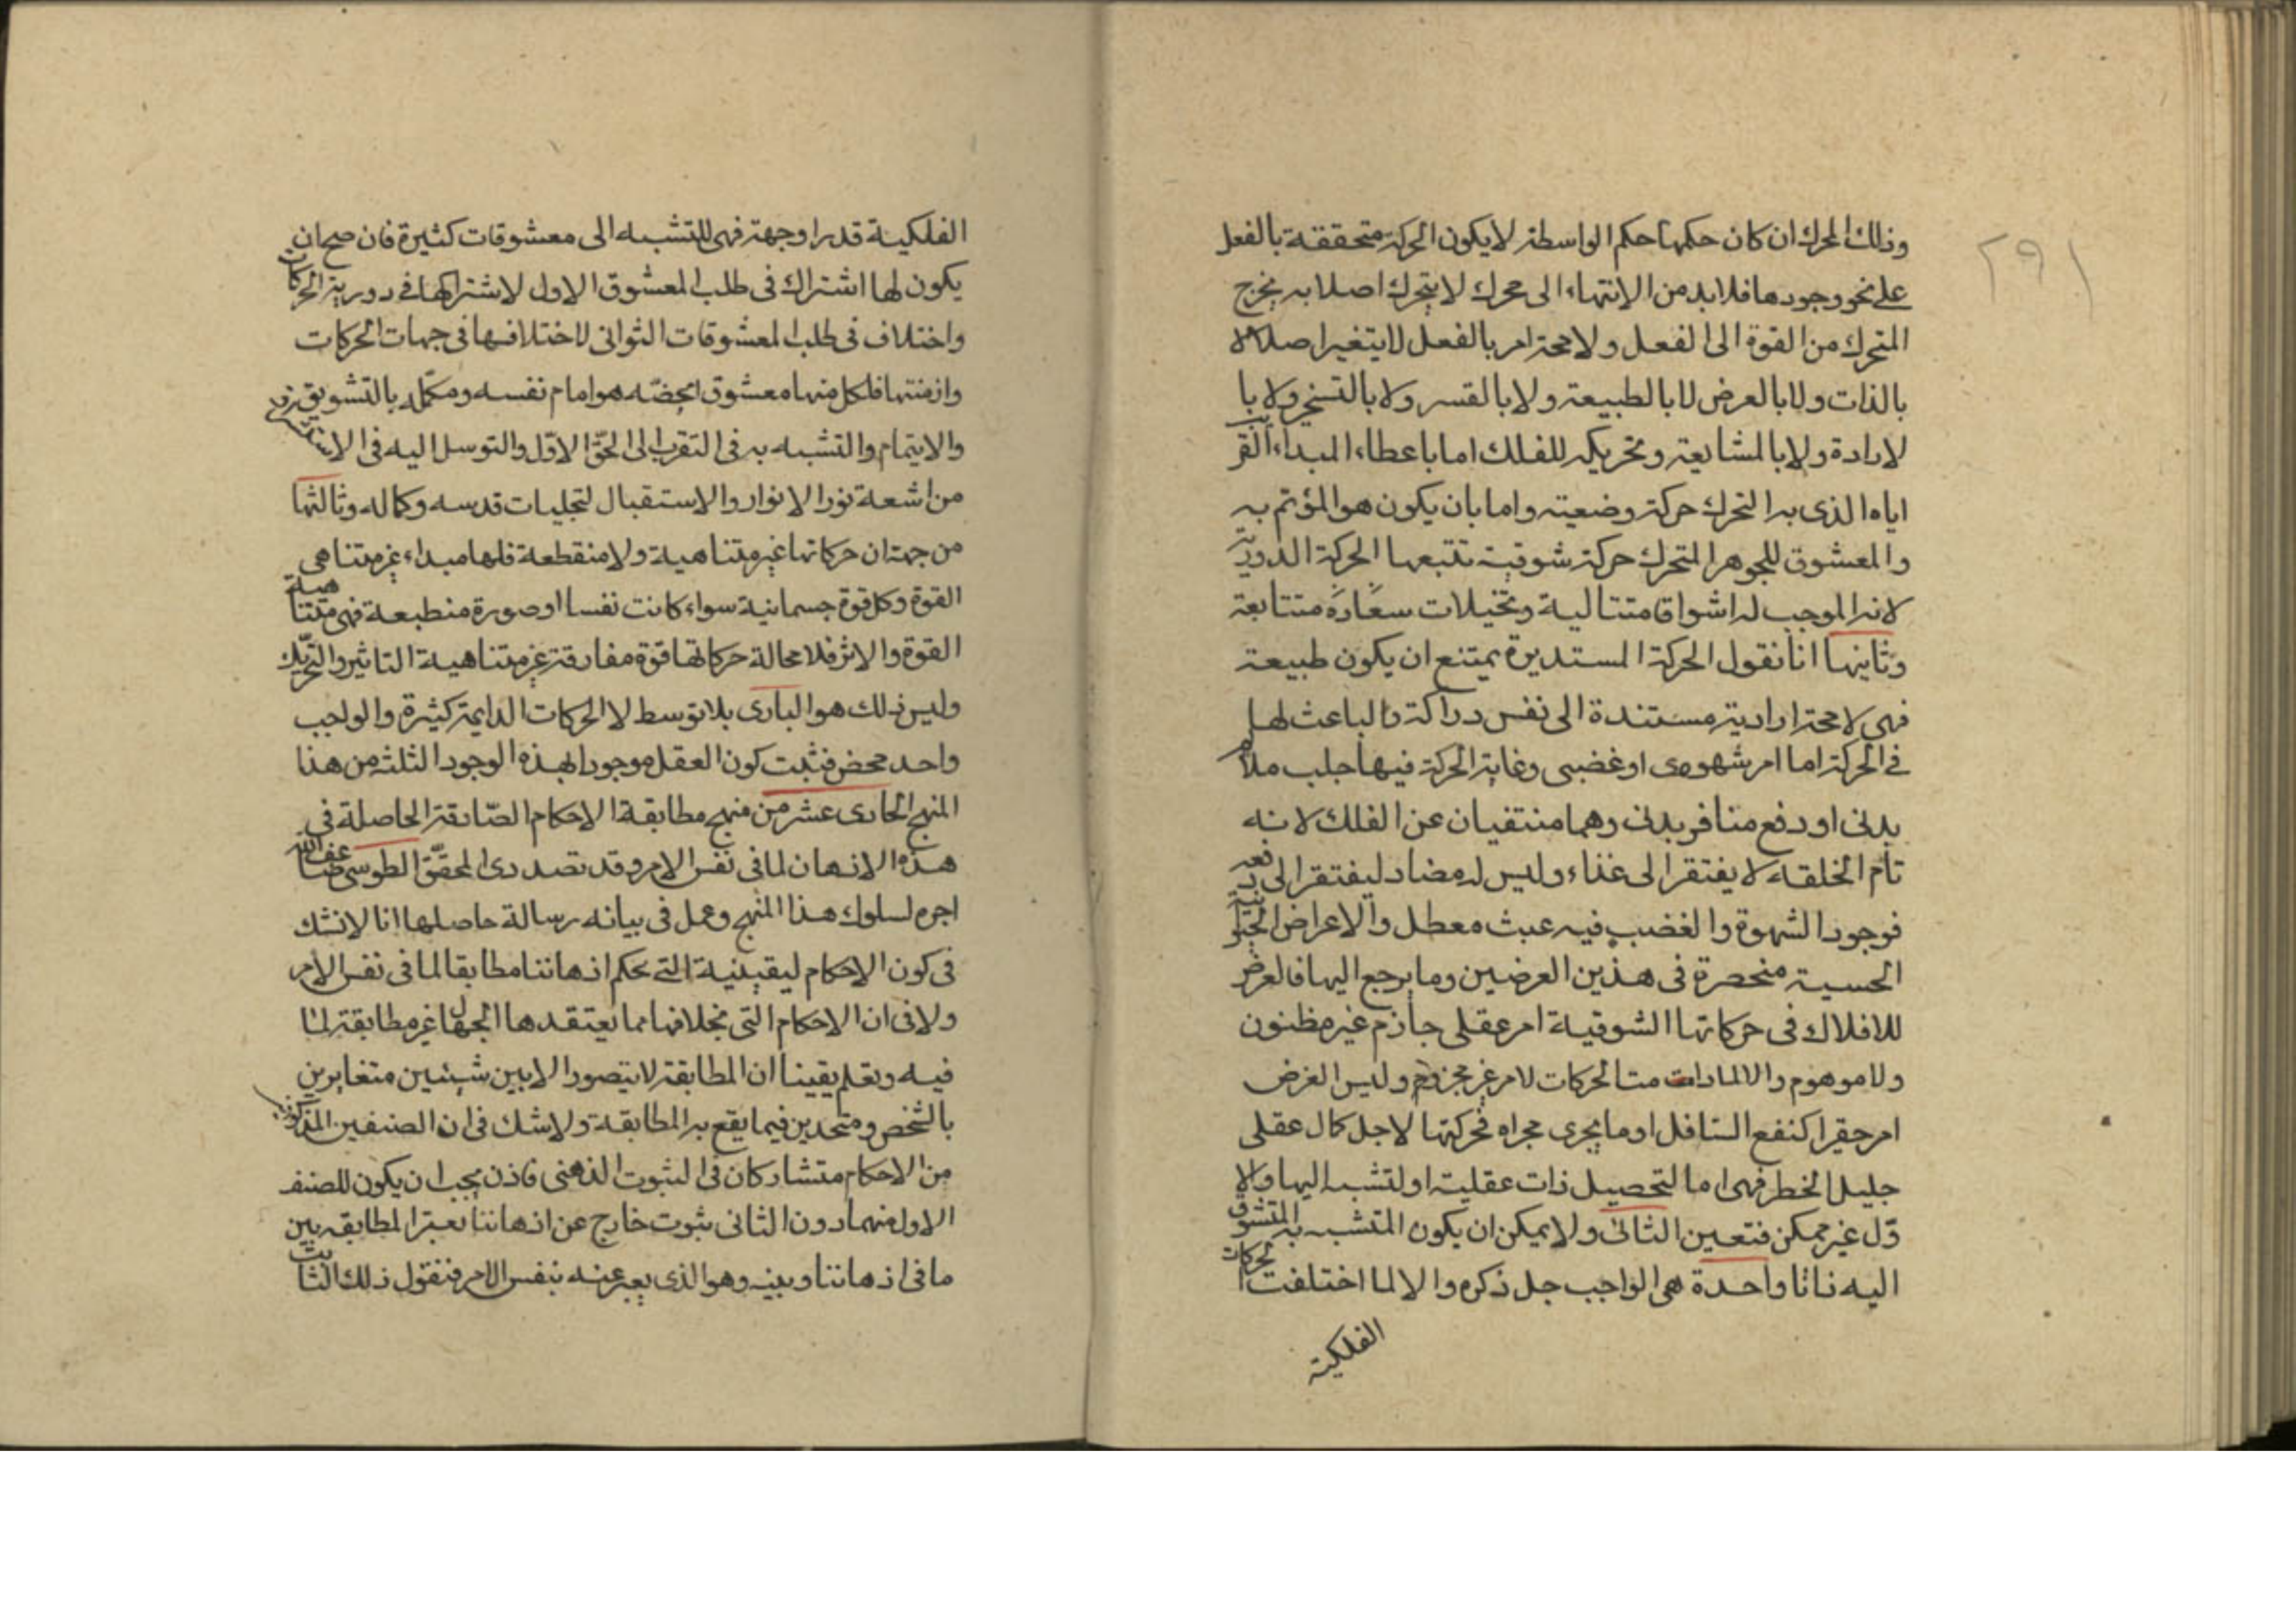 ٢٩١
وذلك المحرك ان كان حكمها حكم الواسطة لا يكون الحركة متحققة بالفعل
على نحو وجودها فلا بد من الانتهاء الى محرك لا يتحرك اصلا به يخرج
المتحرك من القوة الى الفعل ولا محة امر بالفعل لا يتغير اصلا لا
بالذات ولا بالعرض لا بالطبيعة ولا بالقسر ولا بالتسخير ولا با
لارادة ولا بالمشايعة وتحريكه للفلك اما باعطاء المبداء القريب
اياه الذى به التحرك حركة وضعيته واما بان يكون هو المؤتم به
والمعشوق للجوهر المتحرك حركة شوقية تتبعها الحركة الدورية
لانه الموجب له اشواق متتالية وتخيلات متتابعة
وثانيها انا نقول الحركة المستديرة يمتنع ان يكون طبيعة
فهى لا محة ارادية مستندة الى نفس دراكة والباعث لها
فى الحركة اما امر شهوى او غضبى وغاية الحركة فيها جلب ملائم
بدنى او دفع منافر بدنى وهما منتفيان عن الفلك لانه
تام الخلقة لا يفتقر الى غذاء وليس له مضاد ليفتقر الى دفعه
فوجود الشهوة والغضب فيه عبث معطل والاعراض الحيوانية
الحسية منحصرة فى هذين العرضين وما يرجع اليها فالعرض
للافلاك فى حركاتها الشوقية امر عقلى جازم غير مظنون
ولا موهوم والا لما دامت الحركات لامر غير مجزوم وليس الغرض
امر حقيرا كنفع السافل او ما يجرى مجراه فحركتها لاجل كمال عقلى
جليل الخطر فهى اما لتحصيل ذات عقلية او لتشبه اليها والا
وّل غير ممكن فتعين الثانى ولا يمكن ان يكون المتشبه به المتشوق
اليه ذاتا واحدة هى الواجب جل ذكره والا لما اختلفت الحركات
الفلكية
الفلكية قدرا وجهة فهى للتشبه الى معشوقات كثيرة فان صح ان
يكون لها اشتراك فى طلب المعشوق الاول لاشتراكها فى دورية الحركات
واختلاف فى طلب المعشوقات الثوانى لاختلافها فى جهات الحركات
وازمنتها فلكل منها معشوق يخصّه هو امام نفسه ومكمّله بالتشويق
والايتمام والتشبه به فى التقرب الى الحقّ الاوّل والتوسل اليه فى الاستشراق
من اشعة نور الانوار والاستقبال لتجليات قدسه وكماله وثالثها
من جهة ان حركاتها غير متناهية ولا منقطعة فلها مبداء غير متناهى
القوة وكل قوة جسمانية سواء كانت نفسا او صورة منطبعة فهى متناهية
القوة والاثر فلا محالة حركاتها قوة مفارقة غير متناهية التاثير والتحريك
وليس ذلك هو البارى بلا توسط لا الحركات الدايمة كثيرة والواجب
واحد محض فثبت كون العقل موجودا بهذه الوجود الثلثه من هذا
المنهج الحادى عشر من منهج مطابقة الاحكام الصّادقة الحاصلة فى
هذه الاذهان لما فى نفس الامر وقد تصدى المحقّق الطوسى
اجره لسلوك هذا المنهج وعمل فى بيانه رسالة حاصلها انا لا نشك
فى كون الاحكام ليقينية التى يحكم اذهاننا مطابقا لما فى نفس الامر
ولا فى ان الاحكام التى بخلافها مما يعتقدها الجهال غير مطابقة لما
فيه ونعلم يقينا ان المطابقة لا يتصور الا بين شيئين متغايرين
بالشخص ومتحدين فيما يقع به المطابقة ولا شك فى ان الصنفين المذكورين
من الاحكام متشاركان فى الثبوت الذهنى فاذن يجب ان يكون للصنف
الاول منهما دون الثانى ثبوت خارج عن اذهاننا يعتبر المطابقه بين
ما فى اذهاننا وبينه وهو الذى يعبر عنه بنفس الامر فنقول ذلك الثابت